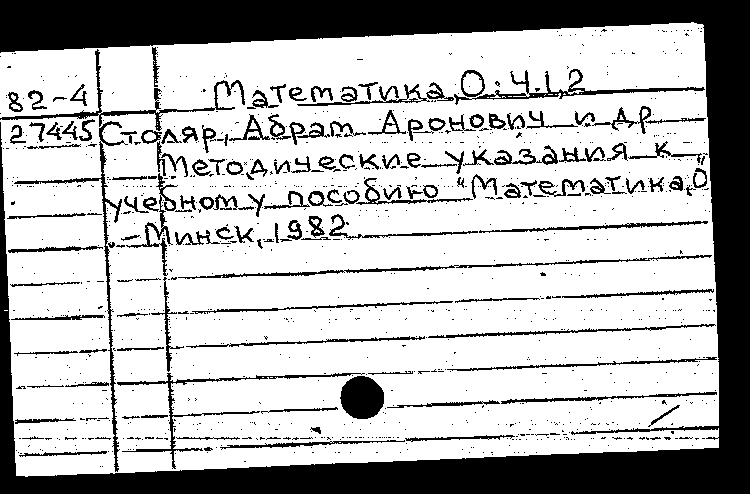 Математика,О: Ч.1,2
82-4
27445 Столяр, Абрам Аронович и др
Методические указания к
учебному пособию "Математика,О"
.-Минск, 1982